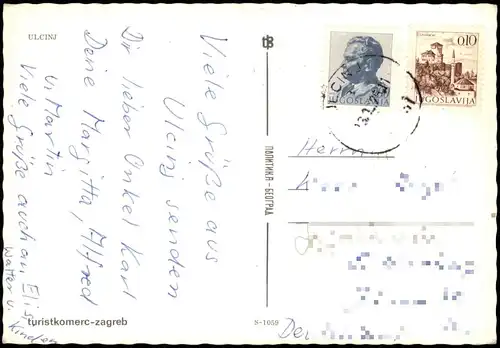 ULCINJ
Viele Grüße aus
Ulcinj senden
Dir lieber Onkel Karl
Deine Margitta, Alfred
u. Martin
Viele Grüße auch an Elis
Walter u. Kinder
turistkomerc-zagreb
ПОЛИТИКА - БЕОГРАД
S-1059
JUGOSLAVIJA
0,10
JUGOSLAVIJA
Herrn